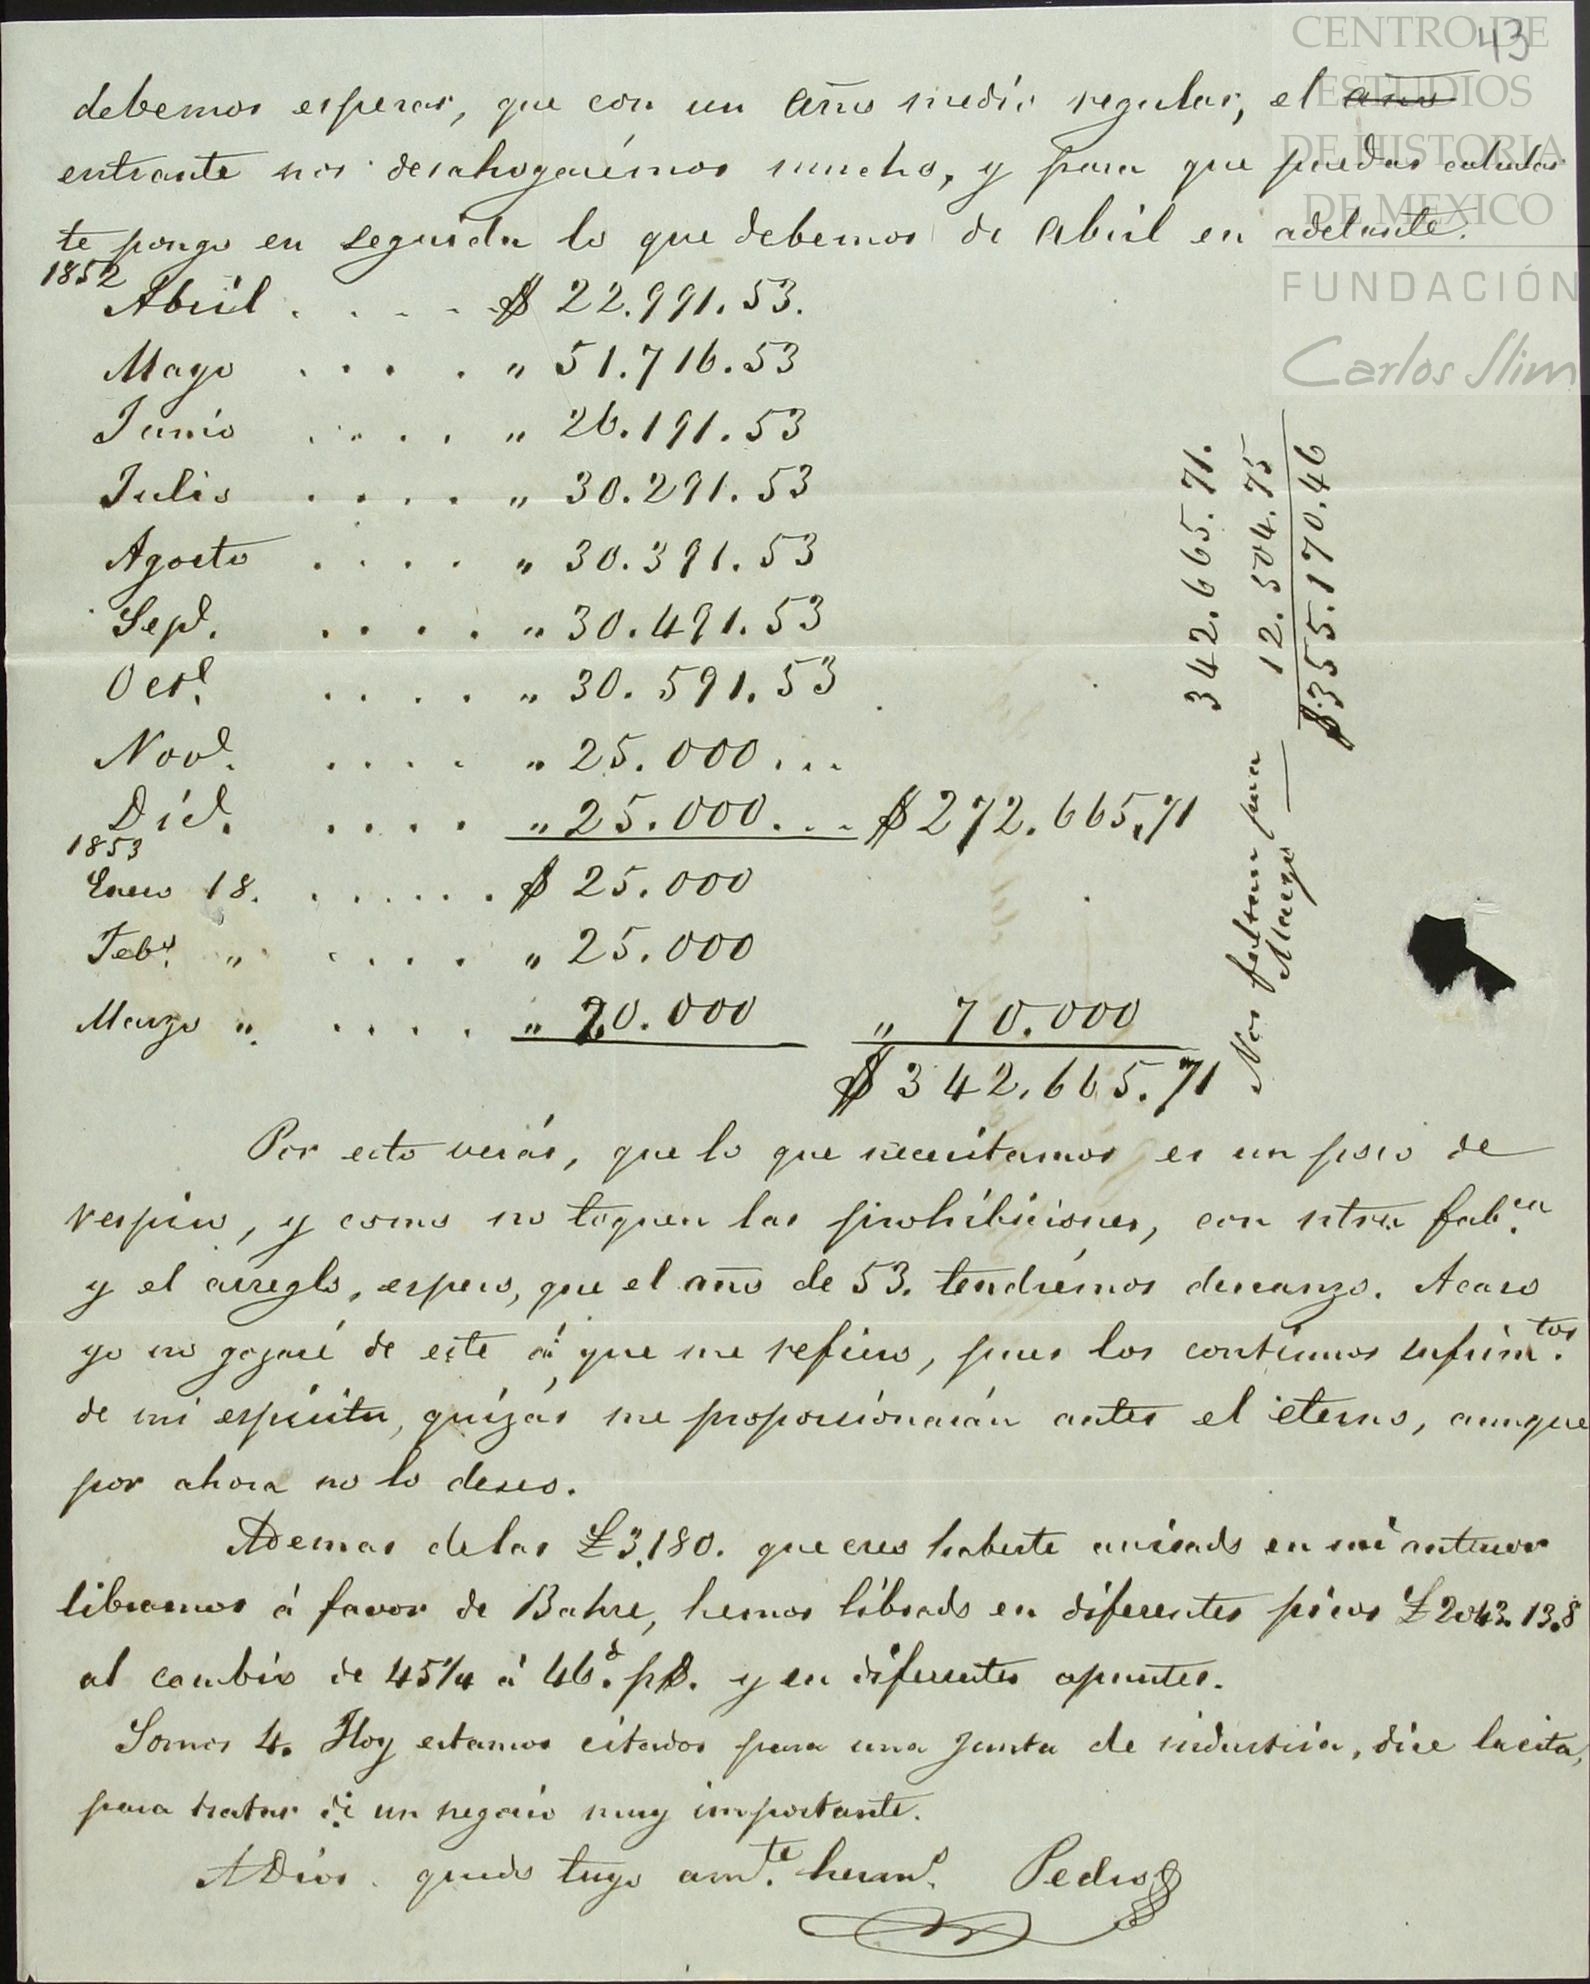 43
CENTRO DE
ESTUDIOS
DE HISTORIA
DE MEXICO
FUNDACIÓN
Carlos Slim
debemos esperar, que con un año medio regular, el año
entrante nos desahogarémos mucho, y para que puedas calcular
te pongo en seguida lo que debemos de Abril en adelante.
1852
Abril . . . . $ 22.991.53.
Mayo . . . . " 51.716.53
Junio . . . . " 26.191.53
Julio . . . . " 30.291.53
Agosto . . . . " 30.391.53
Sepe. . . . . " 30.491.53
Octe. . . . . " 30.591.53
Nove. . . . . " 25.000...
Dice. . . . . " 25.000... $ 272.665.71
1853
Enero 18. . . . . . . $ 25.000
Febo. " . . . . " 25.000
Marzo " . . . . " 20.000 " 70.000
$ 342.665.71
342.665.71.
Nos faltan para Marzo — 12.504.75
$355.170.46
Por esto verás, que lo que necesitamos es un poco de
respiro, y como no toquen las prohibiciones, con ntra fabca.
y el arreglo, espero, que el año de 53. tendrémos descanzo. Acaso
yo no gozaré de este á que me refiero, pues los contínuos sufrimtos.
de mi espiritu, quizás me proporcionarán antes el eterno, aunque
por ahora no lo deseo.
Ademas de las £3,180. que creo haberte avisado en mi anterior
libramos á favor de Bahre, hemos librado en diferentes picos £2043.13.8
al cambio de 45¼ á 46d. p$. y en diferentes apuntes.
Somos 4. Hoy estamos citados para una Junta de industria, dice la cita,
para tratar de un negocio muy importante.
A Dios. quedo tuyo amte. hermo. Pedro